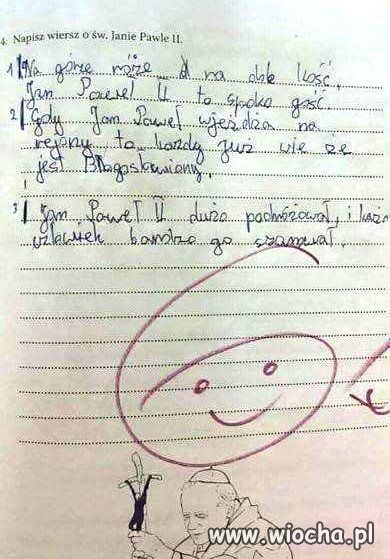 4. Napisz wiersz o św. Janie Pawle II.
1 Na górze róże a na dole kość,
Jan Paweł II to spoko gość.
2 Gdy Jan Paweł wjeżdża na
rejony to każdy już wie że
jest Błogosławiony.
3 Jan Paweł II dużo podróżował, i każ
człowiek bardzo go szanował.
www.wiocha.pl